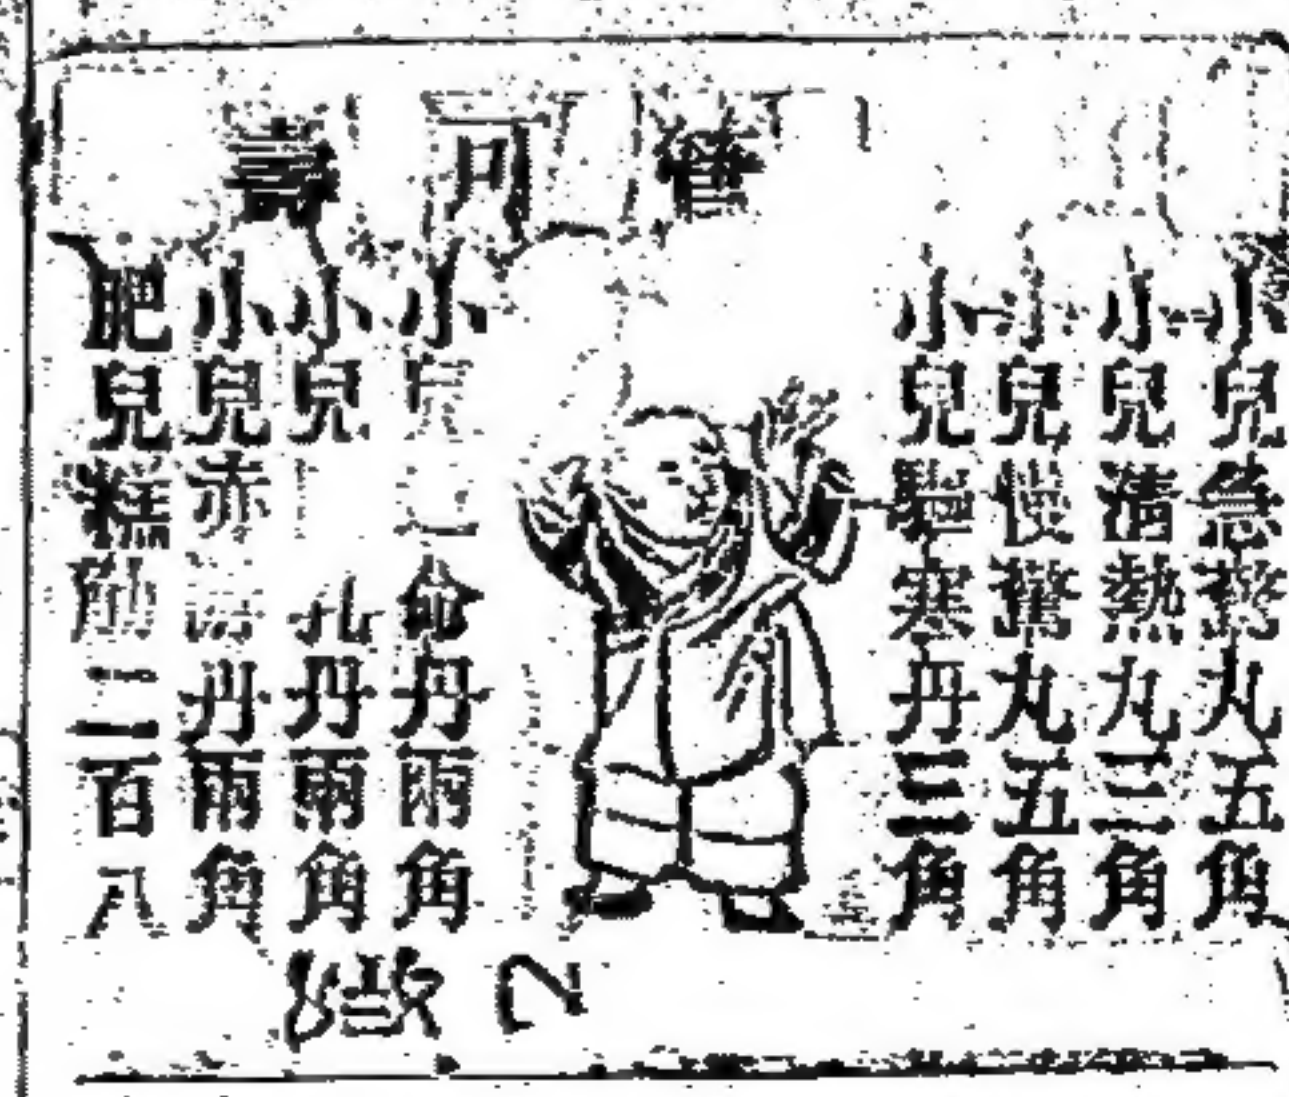 可壽
小兒急驚丸五角
小兒清熱丸三角
小兒慢驚丸五角
小兒驅寒丹三角
小兒命丹兩角
小兒丹兩角
小兒赤丹兩角
肥兒糕觔二百八